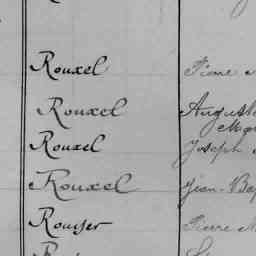 Rouxel Pierre
Rouxel Auguste
Rouxel Joseph
Rouxel Jean-Bap
Rouyer Pierre M